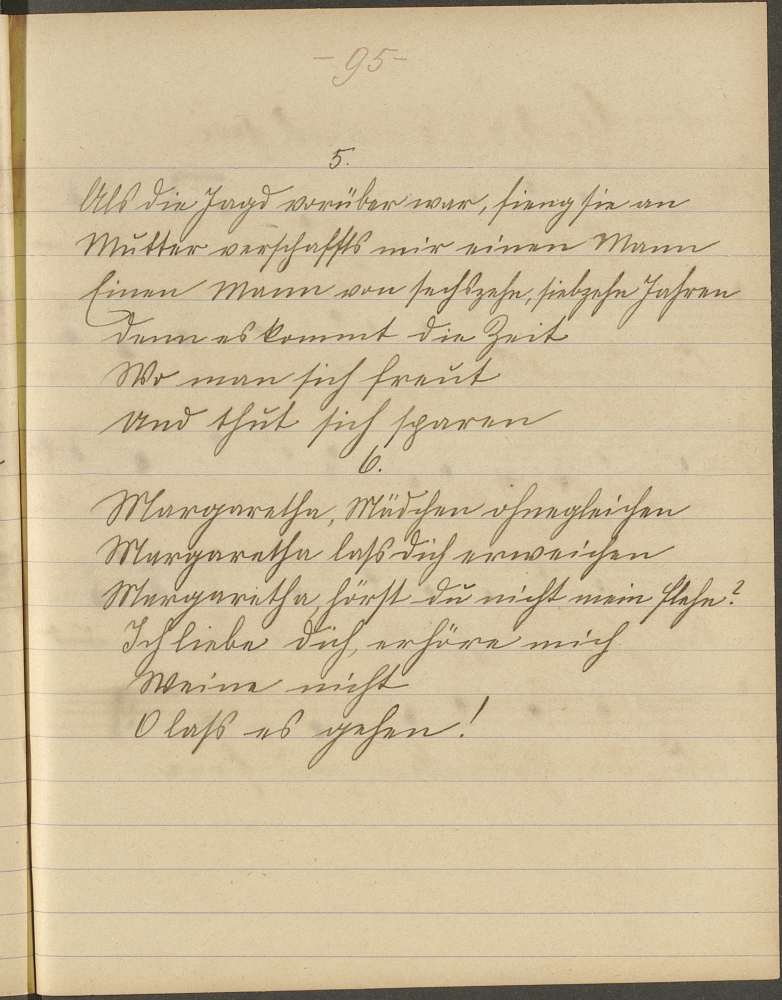 -95-
5.
Als die Jagd vorüber war, sieng sie an
Mutter verschaffts mir einen Mann
Einen Mann von sechszehn, siebzehn Jahren
Denn es kommt die Zeit
Wo man sich freut
Und thut sich sparen
6.
Margaretha, Mädchen ohnegleichen
Margaretha lass dich erweichen
Margaretha, hörst du nicht mein flehn?
Ich liebe dich, erhöre mich
Weine nicht
O lass es gehen!